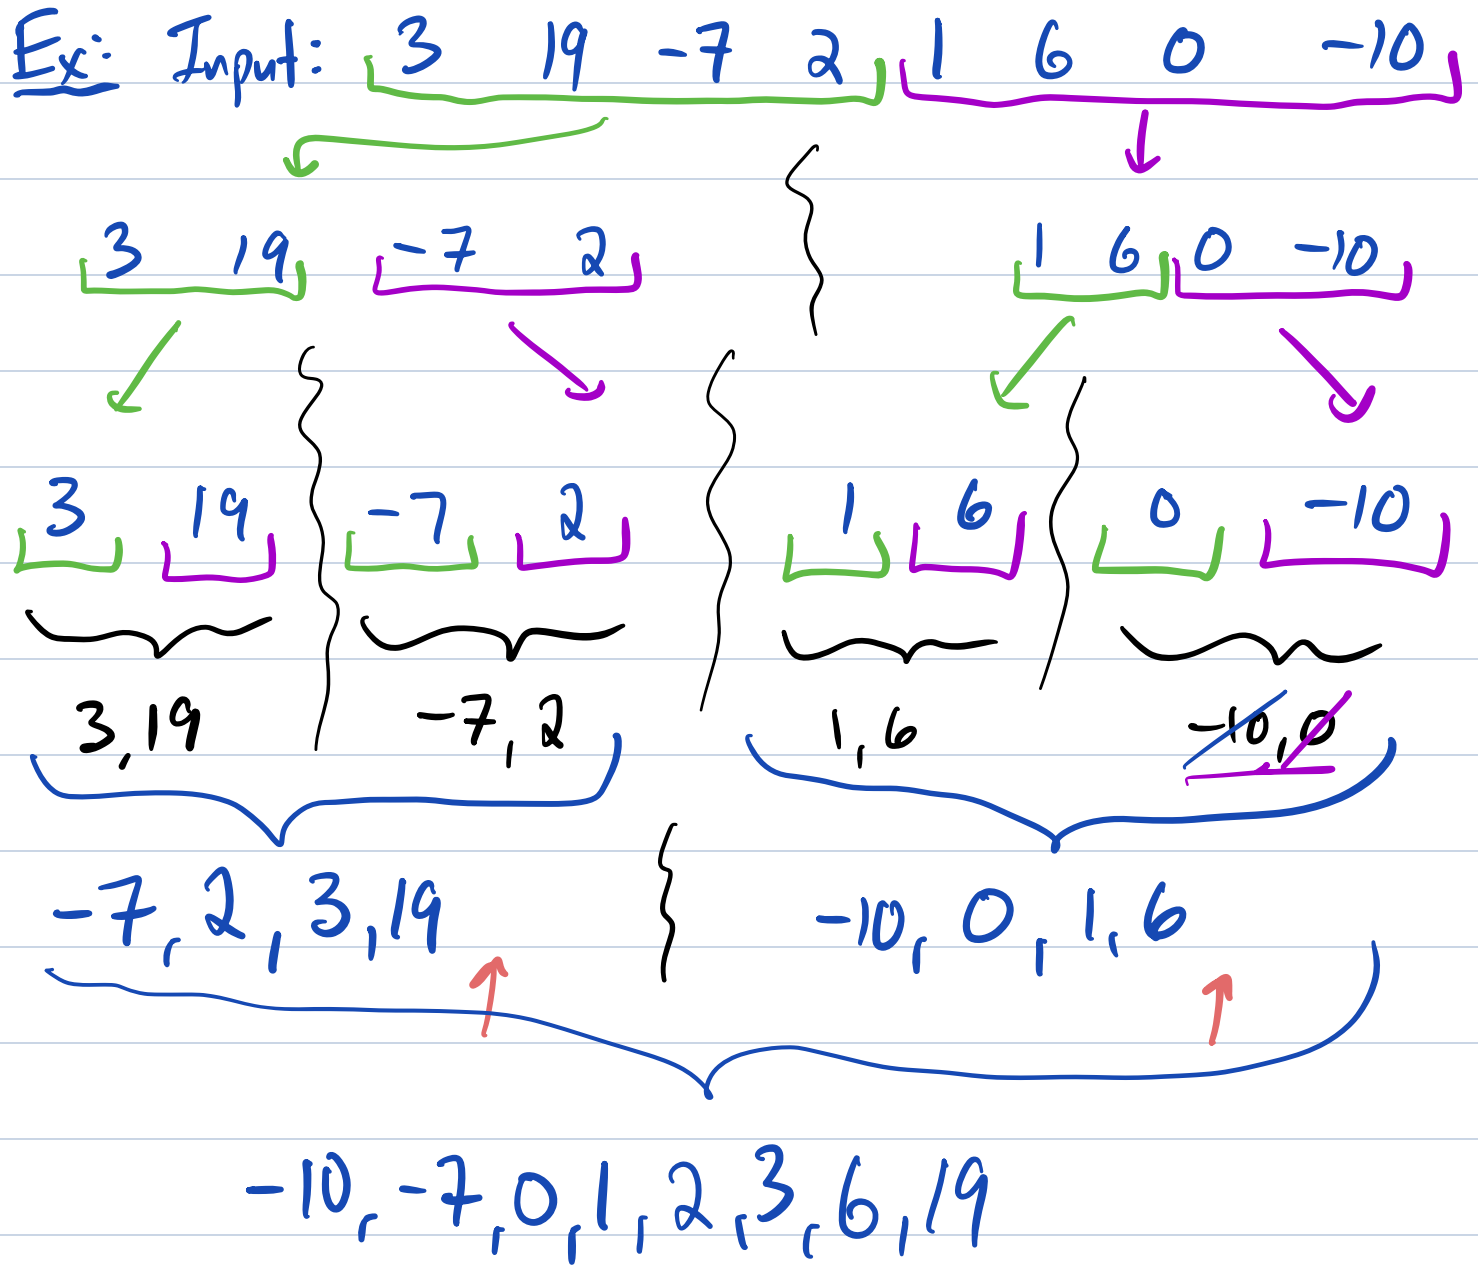 Ex: Input: 3 19 -7 2 1 6 0 -10
3 19 -7 2 1 6 0 -10
3 19 -7 2 1 6 0 -10
3,19 -7,2 1,6 -10,0
-7, 2, 3, 19 -10, 0, 1, 6
-10, -7, 0, 1, 2, 3, 6, 19